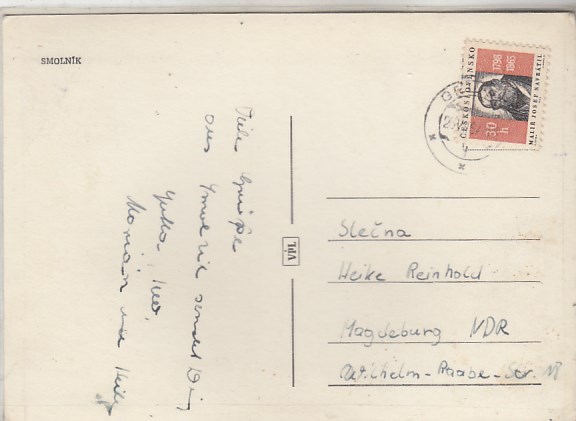 SMOLNÍK
Viele Grüße
aus Smolnik sendet Dir
Jutta, Ivo,
Marian und Heike
VPL
ČESKOSLOVENSKO
1798
1865
30 h
MALÍŘ JOSEF NAVRÁTIL
Slečna
Heike Reinhold
Magdeburg NDR
Wilhelm-Raabe-Str.